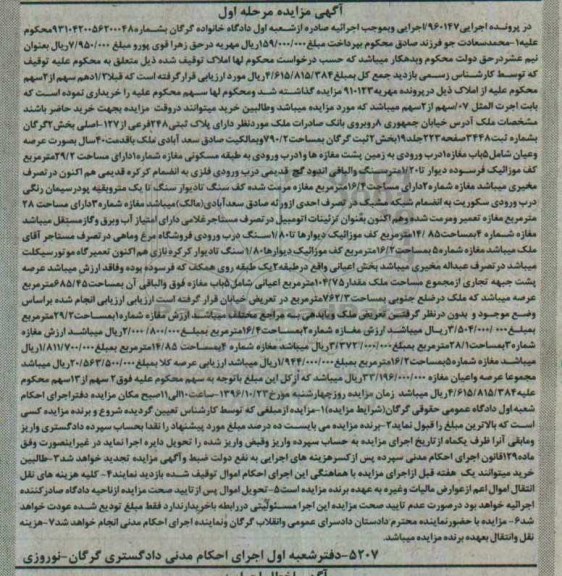 آگهی مزایده مرحله اول
در پرونده اجرایی ۹۶۰۱۴۷/اجرایی وبموجب اجرائیه صادره ازشعبه اول دادگاه خانواده گرگان بشماره ۹۳۱۰۴۲۰۰۵۶۲۰۰۰۴۸محکوم
علیه۱-محمدسعادت جو فرزند صادق محکوم بپرداخت مبلغ ۱۵۹/۰۰۰/۰۰۰ریال مهریه در حق زهرا قوی پورو مبلغ ۷/۹۵۰/۰۰۰ ریال بعنوان
نیم عشردرحق دولت محکوم وبدهکار میباشد که حسب درخواست محکوم لها املاک توقیف شده ذیل متعلق به محکوم علیه توقیف
که توسط کارشناس رسمی بازدید جمع کل بمبلغ۴/۶۱۵/۸۱۵/۳۸۴ریال مورد ارزیابی قرارگرفته است که قبلا۱/۳دهم سهم از۲سهم
محکوم علیه از املاک ذیل درپرونده مهریه۹۱۰۱۲۳ مزایده گذاشته شدومحکوم لها سهم محکوم علیه را خریداری نموده است که
بابت اجرت المثل ۰/۷سهم از۲سهم میباشد که مورد مزایده میباشد وطالبین خرید میتوانند دروقت مزایده بجهت خرید حاضر باشند
مشخصات ملک آدرس خیابان جمهوری ۸روبروی بانک صادرات ملک موردنظر دارای پلاک ثبتی۲۴۸فرعی از۱۲۷-اصلی بخش۲گرگان
بشماره ثبت۳۴۴۸صفحه۲۲۳جلد۱۹بخش۲ثبت گرگان بمساحت۷۹۰/۲وبمالکیت صادق سعد آبادی ملک باقدمت۴۰سال بصورت عرصه
وعیان شامل۵باب مغازه۱درب ورودی به زمین پشت مغازه ها و۱درب ورودی به طبقه مسکونی مغازه شماره۱دارای مساحت ۲۹/۲مترمربع
کف موزائیک فرسوده دیوار تا۱/۲۰مترسنگ والباقی اندود گچ قدیمی درب ورودی فلزی به انضمام کرکره قدیمی هم اکنون در تصرف
مخبری میباشد مغازه شماره ۲دارای مساحت۱۶/۴مترمربع مغازه مرمت شده کف سنگ تادیوار سنگ تا یک متروبقیه پودرسیمان رنگی
درب ورودی سکوریت به انضمام شبکه مشبک در تصرف احدی ازورثه صادق سعدآبادی(مالک)میباشد مغازه شماره ۳دارای مساحت ۲۸
مترمربع مغازه تعمیر ومرمت شده وهم اکنون بعنوان تزئینات اتومبیل در تصرف مستاجرغلامی دارای امتیاز آب وبرق وگازمستقل میباشد
مغازه شماره ۴بمساحت۱۴/۸۵ مترمربع کف موزائیک دیوارها تا۱/۸۰سنگ درب ورودی فروشگاه مرغ وماهی در تصرف مستاجر آقای
ملک میباشد مغازه شماره۵بمساحت۱۶/۲مترمربع کف موزائیک دیوارها۱/۸۰سنگ تادیوار کرکره نازی هم اکنون تعمیرگاه مو تورسیکلت
میباشد در تصرف عبداله مخبری میباشد بخش اعیانی واقع درطبقه۲یک طبقه روی همکف که فرسوده بوده وفاقد ارزش میباشد عرصه
پشت جبهه تجاری ازمجموع مساحت ملک مقدار۱۰۴/۷۵مترمربع اعیانی شامل۵باب مغازه فوق والباقی آن بمساحت۶۸۵/۴۵مترمربع
عرصه میباشد که ملک درضلع جنوبی بمساحت۷۶۲/۳مترمربع در تعریض خیابان قرار گرفته است ارزیابی ارزیابی انجام شده براساس
وضع موجود و بدون درنظر گرفتن تعریض ملک وبابدهی به مراجع مختلف میباشد ارزش مغازه شماره۱بمساحت۲۹/۲مترمربع
بمبلغ۳/۵۰۴/۰۰۰/۰۰۰ ریال میباشد ارزش مغازه شماره۲بمساحت۱۶/۴مترمربع بمبلغ۲/۰۰۰/۸۰۰/۰۰۰ریال میباشد ارزش مغازه
شماره۳بمساحت۲۸/۱مترمربع بمبلغ۳/۳۷۲/۰۰۰/۰۰۰ریال میباشد مغازه شماره ۴بمساحت ۱۴/۸۵مترمربع بمبلغ۱/۸۱۱/۷۰۰/۰۰۰ریال
میباشد مغازه شماره۵بمساحت۱۶/۲مترمربع بمبلغ۱/۹۴۴/۰۰۰/۰۰۰ریال میباشد ارزیابی عرصه کلا بمبلغ۲۰/۵۶۳/۵۰۰/۰۰۰ریال میباشد
مجموعا عرصه واعیان مغازه ۳۳/۱۹۶/۰۰۰/۰۰۰ریال میباشد که ازکل این مبلغ باتوجه به سهم محکوم علیه فوق۲ سهم از۱۳سهم محکوم
علیه۴/۶۱۵/۸۱۵/۳۸۴ریال میباشد زمان مزایده روزچهارشنبه مورخ۱۳۹۶/۱۰/۲۳-ساعت۱۰الی۱۱صبح مکان مزایده دفتراجرای احکام
شعبه اول دادگاه عمومی حقوقی گرگان(شرایط مزایده)۱-مزایده ازمبلغی که توسط کارشناس تعیین گردیده شروع و برنده مزایده کسی
است که بالاترین مبلغ را قبول نماید۲-برنده مزایده می بایست ده درصد مبلغ مورد پیشنهاد را نقدا بحساب سپرده دادگستری واریز
ومابقی آنرا ظرف یکماه از تاریخ اجرای مزایده به حساب سپرده واریز وقبض واریز شده را تحویل دایره اجرا نماید در غیراینصورت وفق
ماده۱۲۹قانون اجرای احکام مدنی سپرده پس ازکسرهزینه های اجرایی به نفع دولت ضبط وآگهی مزایده تجدید خواهد شد۳-طالبین
خرید میتوانند یک هفته قبل ازاجرای مزایده با هماهنگی این اجرای احکام اموال توقیف شده بازدید نمایند۴-کلیه هزینه های نقل
انتقال اموال اعم ازعوارض مالیات وغیره به عهده برنده مزایده است۵-تحویل اموال پس از تایید صحت مزایده ازناحیه دادگاه صادرکننده
اجرائیه خواهد بود درصورت عدم تایید صحت مزایده این اجرا مسئولیتی دررابطه باخریدارندارد فقط مبلغ تودیع شده عودت خواهد
شد۶-مزایده با حضورنماینده محترم دادستان دادسرای عمومی وانقلاب گرگان ونماینده اجرای احکام مدنی انجام خواهد شد۷-هزینه
نقل وانتقال بعهده برنده مزایده میباشد.
۵۲۰۷-دفترشعبه اول اجرای احکام مدنی دادگستری گرگان-نوروزی